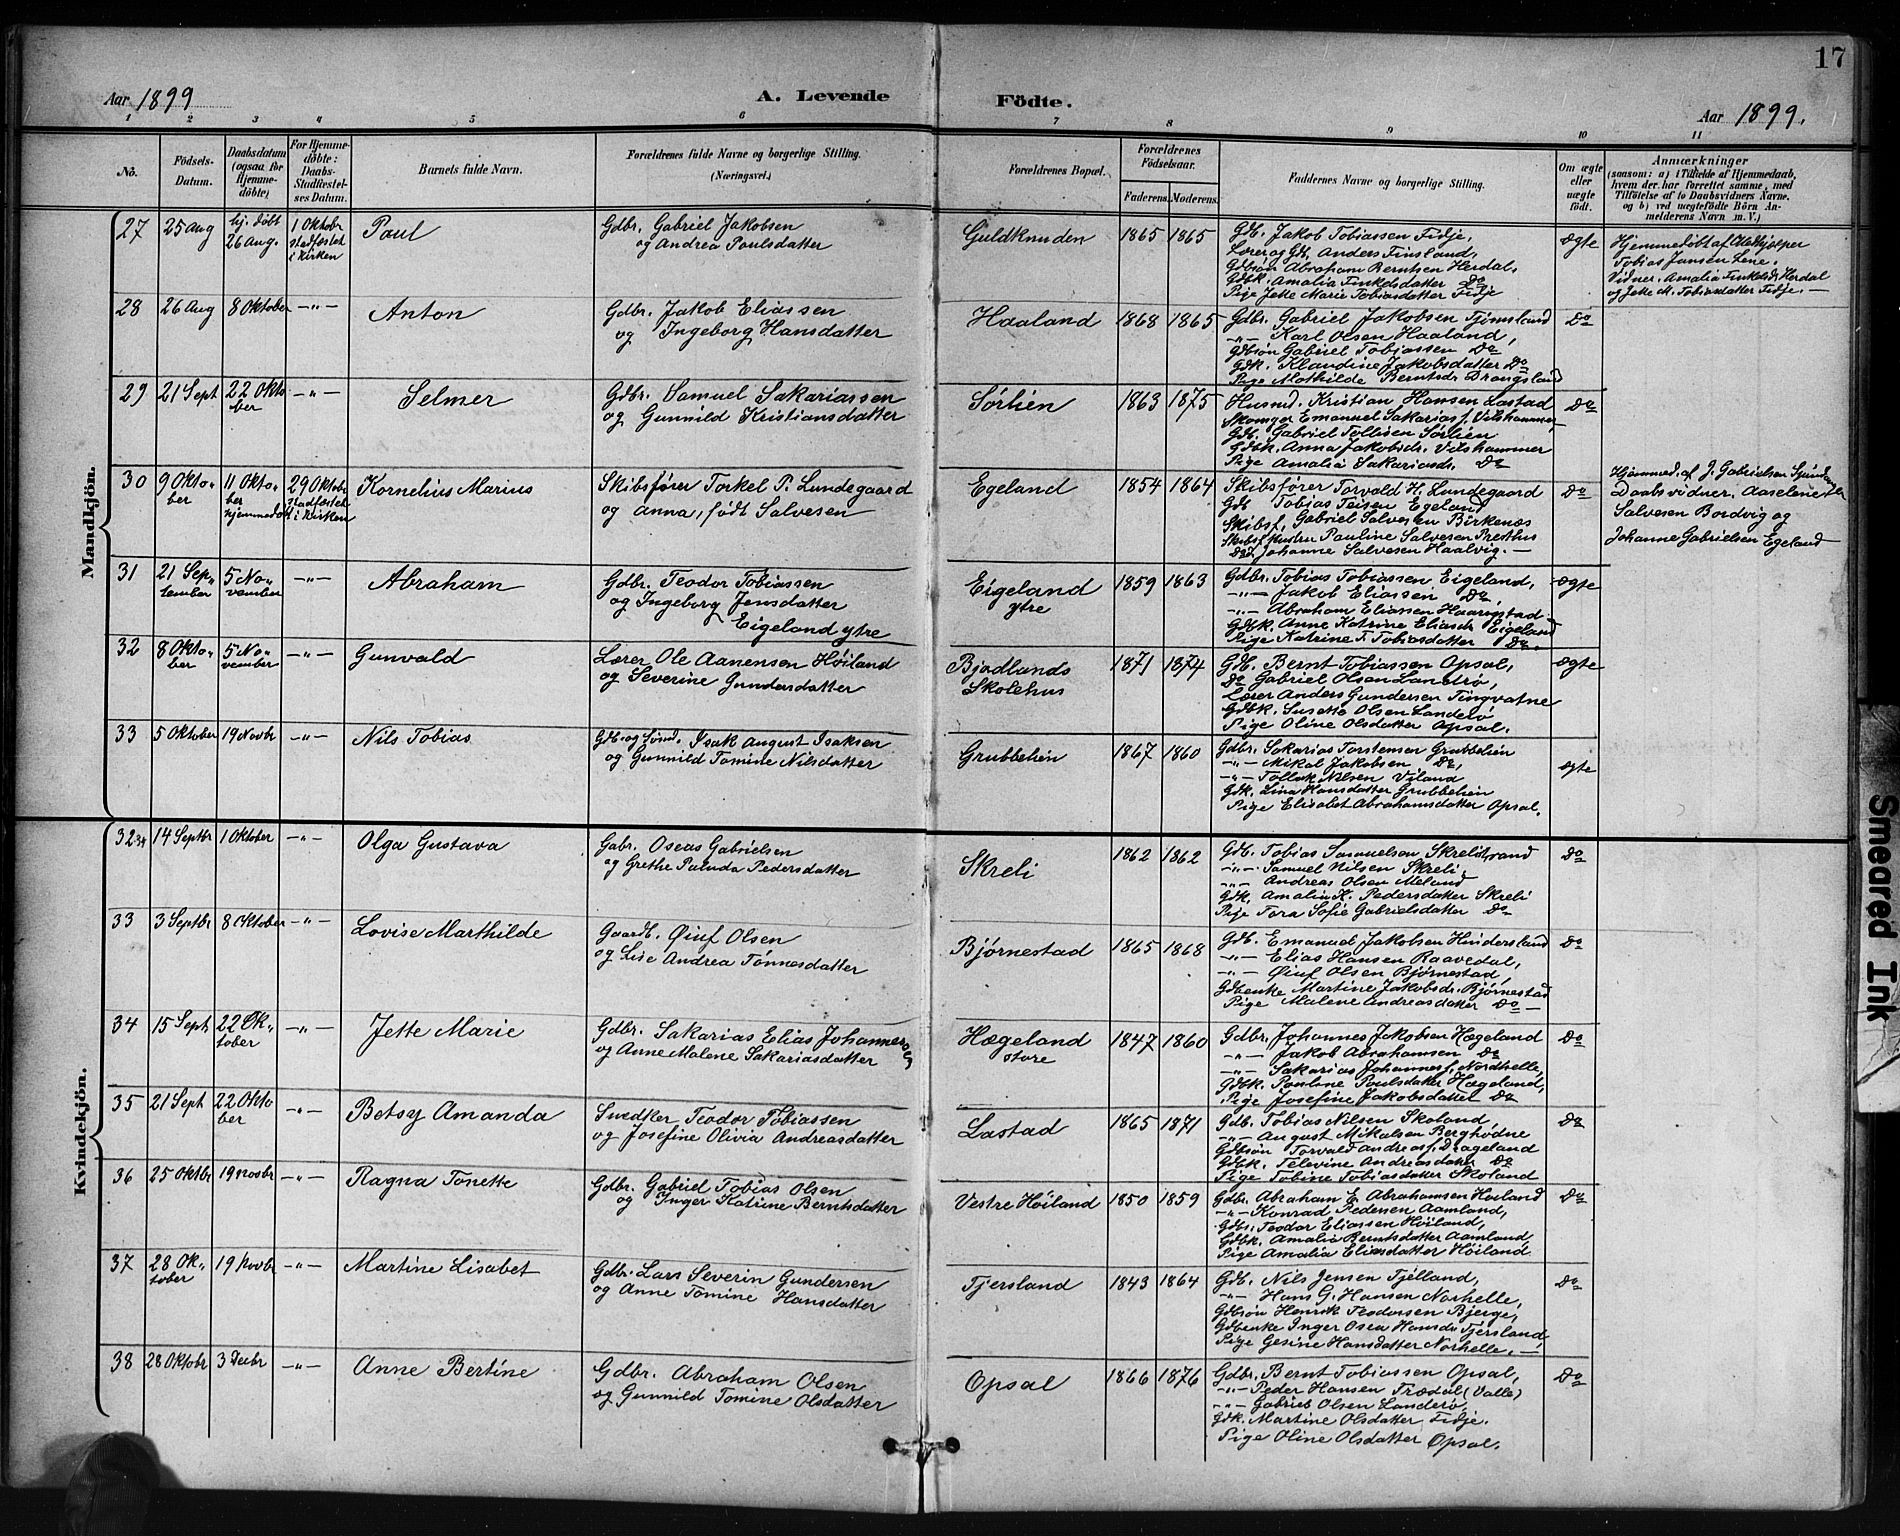 17
Aar 1899
A. Levende
Födte.
Aar 1899.
1 2 3 4 5 6 7 8 9 10 11
No.
Födsels-
Datum.
Daabsdatum
(ogsaa for
Hjemme-
döbte)
For Hjemme-
döbte:
Daabs-
Stadfæstel-
ses Datum.
Barnets fulde Navn.
Forældrenes fulde Navne og borgerlige Stilling.
(Næringsvei.)
Forældrenes Bopæl.
Forældrenes
Födselsaar.
Faderens.
Moderens.
Faddernes Navne og borgerlige Stilling.
Om ægte
eller
uægte
födt.
Anmærkninger
(saasom: a) i Tilfælde af Hjemmedaab,
hvem der har forrettet samme, med
Tilföielse af to Daabsvidners Navne,
og b) ved uægtefödte Börn An-
melderens Navn m. V.)
Mandkjön.
27 25 Aug
hj. døbt
26 Aug.
1 Oktobr
stadfæstet
i Kirken
Paul
Gdbr. Gabriel Jakobsen
og Andrea Paulsdatter
Guldknuden 1865 1865
Gdb. Jakob Tobiassen Fidje,
Lærer og Gb. Anders Finsland,
Gdbsøn Abraham Berntsen Herdal,
Gdbk. Amalia Finkelsdatter Do
Pige Jette Marie Tobiasdatter Fidje
ægte
Hjemmedøbt af
Tobias Jansen Lene.
Vidner. Amalia Finkelsdr Herdal
og Jette M. Tobiasdatter Fidje. —
28 26 Aug 8 Oktober —"—
Anton
Gdbr. Jakob Eliassen
og Ingeborg Hansdatter
Haaland 1868 1865
Gdbr. Gabriel Jakobsen Tjomsland
—"— Karl Olsen Haaland,
Gdbsøn Gabriel Tobiassen Do
Gdk. Klandine Jakobsdatter Do
Pige Mathilde Berntsdr Drangsland
Do
29 21 Sept 22 Okto
ber —"—
Selmer
Gdbr. Samuel Sakariassen
og Gunnild Kristiansdatter
Sørlien 1863 1875
Husmd. Kristian Hansen Lastad
Skomger Emanuel Sakarias f. Vilshammer,
Gdb. Gabriel Tollisen Sørlien
Gdbk. Anna Jakobsdr. Vilshammer
Pige Amalia Sakariasdr. Do
Do
30 9 Okto-
ber
11 Okto-
ber
hjemmedøbt
29 Oktobr
stadfæstet
i Kirken
Kornelius Marius
Skibsfører Torkel P. Lundegaard
og Anna, født Salvesen
Egeland 1854 1864
Skibsfører Torvald H. Lundegaard
Gdb Tobias Teisen Egeland
Skibsf. Gabriel Salvesen Birkenæs
Skibsf. Hustru Pauline Salvesen Presthus
Do Johanne Salvesen Haalvig. —
Do
Hjemmed. af J. Gabrielsen
Daabsvidner. Aaselene
Salvesen Bordvig og
Johanne Gabrielsen Egeland
31 21 Sep-
tember
5 No-
vember —"—
Abraham
Gdbr. Teodor Tobiassen
og Ingeborg Jensdatter
Eigeland ytre
Eigeland
ytre
1859 1863
Gdbr. Tobias Tobiassen Eigeland,
—"— Jakob Eliassen Do,
—"— Abraham Eliassen Haarigstad
Gdbk. Anne Katrine Eliasdr Eigeland
Pige Katrine T. Tobiasdatter Do.
ægte
32 8 Okto-
ber
5 No-
vember —"—
Gunvald
Lærer Ole Aanensen Høiland
og Severine Gundersdatter
Bjødlands
Skolehus
1871 1874
Gdb. Bernt Tobiassen Opsal,
Do Gabriel Olsen Landrø,
Lærer Anders Gundersen Tingvatne
Gdbk. Susette Olsen Landerø
Pige Oline Olsdatter Opsal.
ægte
33 5 Oktober 19 Novbr —"—
Nils Tobias
Gdb. og Smd. Isak August Isaksen
og Gunnild Tomine Nilsdatter
Grubbelien 1867 1860
Gdbr. Sakarias Torstensen Grubbelien
—"— Mikal Jakobsen Do,
—"— Tollak Nilsen Viland
Gdk. Lina Hansdatter Grubbelien
Pige Elisabet Abrahamsdatter Opsal.
ægte
Kvindekjön.
32 34 14 Septbr 1 Oktober —"—
Olga Gustava
Gabr. Oseas Gabrielsen
og Grethe Palnda Pedersdatter
Skreli 1862 1862
Gdb. Tobias Samuelsen Skrelistrand
—"— Samuel Nilsen Skreli,
—"— Andreas Olsen Meland
Gdk. Amalia K. Pedersdatter Skreli
Pige Tora Sofie Gabrielsdatter Do
Do
33 3 Septbr 8 Oktober —"—
Lovise Marthilde
Gaardb. Øiuf Olsen
og Lise Andrea Tønnesdatter
Bjørnestad 1865 1868
Gdb. Emanuel Jakobsen Hindersland
—"— Elias Hansen Raavedal,
—"— Øiuf Olsen Bjørnestad,
Gdbenke Martine Jakobsdr. Bjørnestad
Pige Malene Andreasdatter Do —
Do
34 15 Sept 22 Ok-
tober —"—
Jette Marie
Gdbr. Sakarias Elias Johannesen
og Anne Malene Sakariasdatter
Hægeland
store
1847 1860
Gdbr. Johannes Jakobsen Hægeland
—"— Jakob Abrahamsen Do
—"— Sakarias Johannes f. Nordhelle,
Gdbk. Pauline Poulsdatter Hægeland,
Pige Josefine Jakobsdatter Do
Do
35 21 Sept 22 Okto
ber —"—
Betsy Amanda
Snedker Teodor Tobiassen
og Josefine Olivia Andreasdatter
Lastad 1865 1871
Gdb. Tobias Nilsen Skoland,
—"— August Mikalsen Berghødne
Gdbsøn Torvald Andreas f. Drageland
Gdbk. Televine Andreasdatter Do
Pige Tobine Tobiasdatter Skoland
Do
36 25 Oktbr 19 Novbr —"—
Ragna Tonette
Gdbr. Gabriel Tobias Olsen
og Inger Katrine Berntsdatter
Vestre Høiland 1850 1859
Gdbr. Abraham E. Abrahamsen Høiland
—"— Konrad Pedersen Aamland,
Gdbs. Teodor Eliassen Høiland,
Gdbk. Amalia Berntsdatter Aamland,
Pige Amalia Eliasdatter Høiland
Do
37 28 Ok-
tober
19 Novbr —"—
Martine Lisabet
Gdbr. Lars Severin Gundersen
og Anne Tomine Hansdatter
Tjersland 1843 1864
Gdb. Nils Jensen Tjelland,
—"— Hans G. Hansen Norhelle,
Gdbsøn Henrik Teodorsen Bjerge,
Gdbenke Inger Osea Hansdr Tjersland,
Pige Gesine Hansdatter Norhelle. —
Do
38 28 Oktobr 3 Decbr —"—
Anne Bertine
Gdbr. Abraham Olsen
og Gunnild Tomine Olsdatter
Opsal 1866 1876
Gdbr. Bernt Tobiassen Opsal,
—"— Peder Hansen Trædal (Valle)
—"— Gabriel Olsen Landerø,
Gdk. Martine Olsdatter Fidje.
Pige Oline Olsdatter Opsal.
Do
Smeared Ink